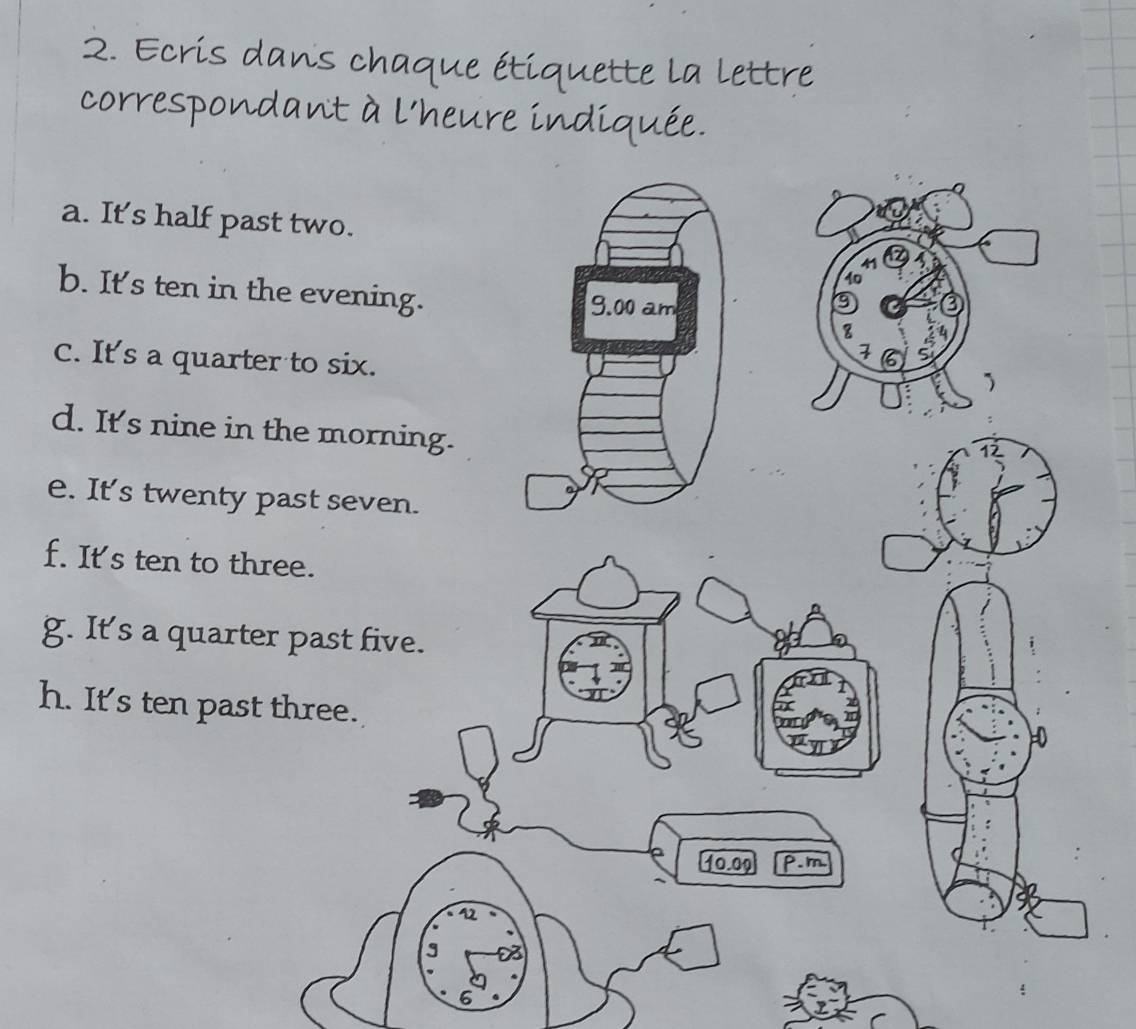 2. Ecris dans chaque étiquette la lettre
correspondant à l'heure indiquée.
a. It's half past two.
b. It's ten in the evening.
c. It's a quarter to six.
d. It's nine in the morning.
e. It's twenty past seven.
f. It's ten to three.
g. It's a quarter past five.
h. It's ten past three.
9.00 am
11 12 1
10
9 3
8 4
7 6 5
12
10.00 p.m
12
9 3
6